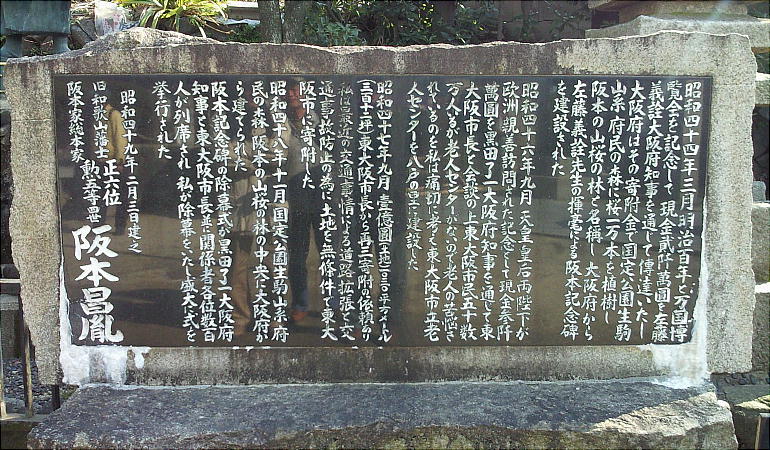 昭和四十四年三月明治百年と万国博
覧会を記念して、現金貳阡萬圓を左藤
義詮大阪府知事を通して傳達いたし
大阪府はその寄附金で国定公園生駒
山系府民の森に桜一万本を植樹し
阪本の山桜の林と名稱し大阪府から
左藤義詮先生の揮毫による阪本記念碑
を建設された
昭和四十六年九月 天皇皇后両陛下が
欧洲親善訪問された記念として現金参阡
萬圓を黒田了一大阪府知事を通じて東
大阪市長と会談の上東大阪市民五十数
万人もが老人センターがないので老人の苦悩さ
れているのを私は痛切に考へ東大阪市立老
人センターを八戸の里に建設した
昭和四十七年九月壹億圓(土地一〇三〇平方メートル
(三百十二坪)東大阪市長から再三寄附の依頼あり
私は最近の交通事情による道路拡張と交
通事故防止の為に土地を無條件で東大
阪市に寄附した
昭和四十八年十一月国定公園生駒山系府
民の森阪本の山桜の林の中央に大阪府か
ら建てられた
阪本記念碑の除幕式が黒田了一大阪府
知事と東大阪市長並に関係者各位数百
人が列席され私が除幕をいたし盛大に式を
挙行された
昭和四十九年二月三日建之
旧和歌山藩士 正六位
阪本家総本家 勲五等 世 阪本昌胤